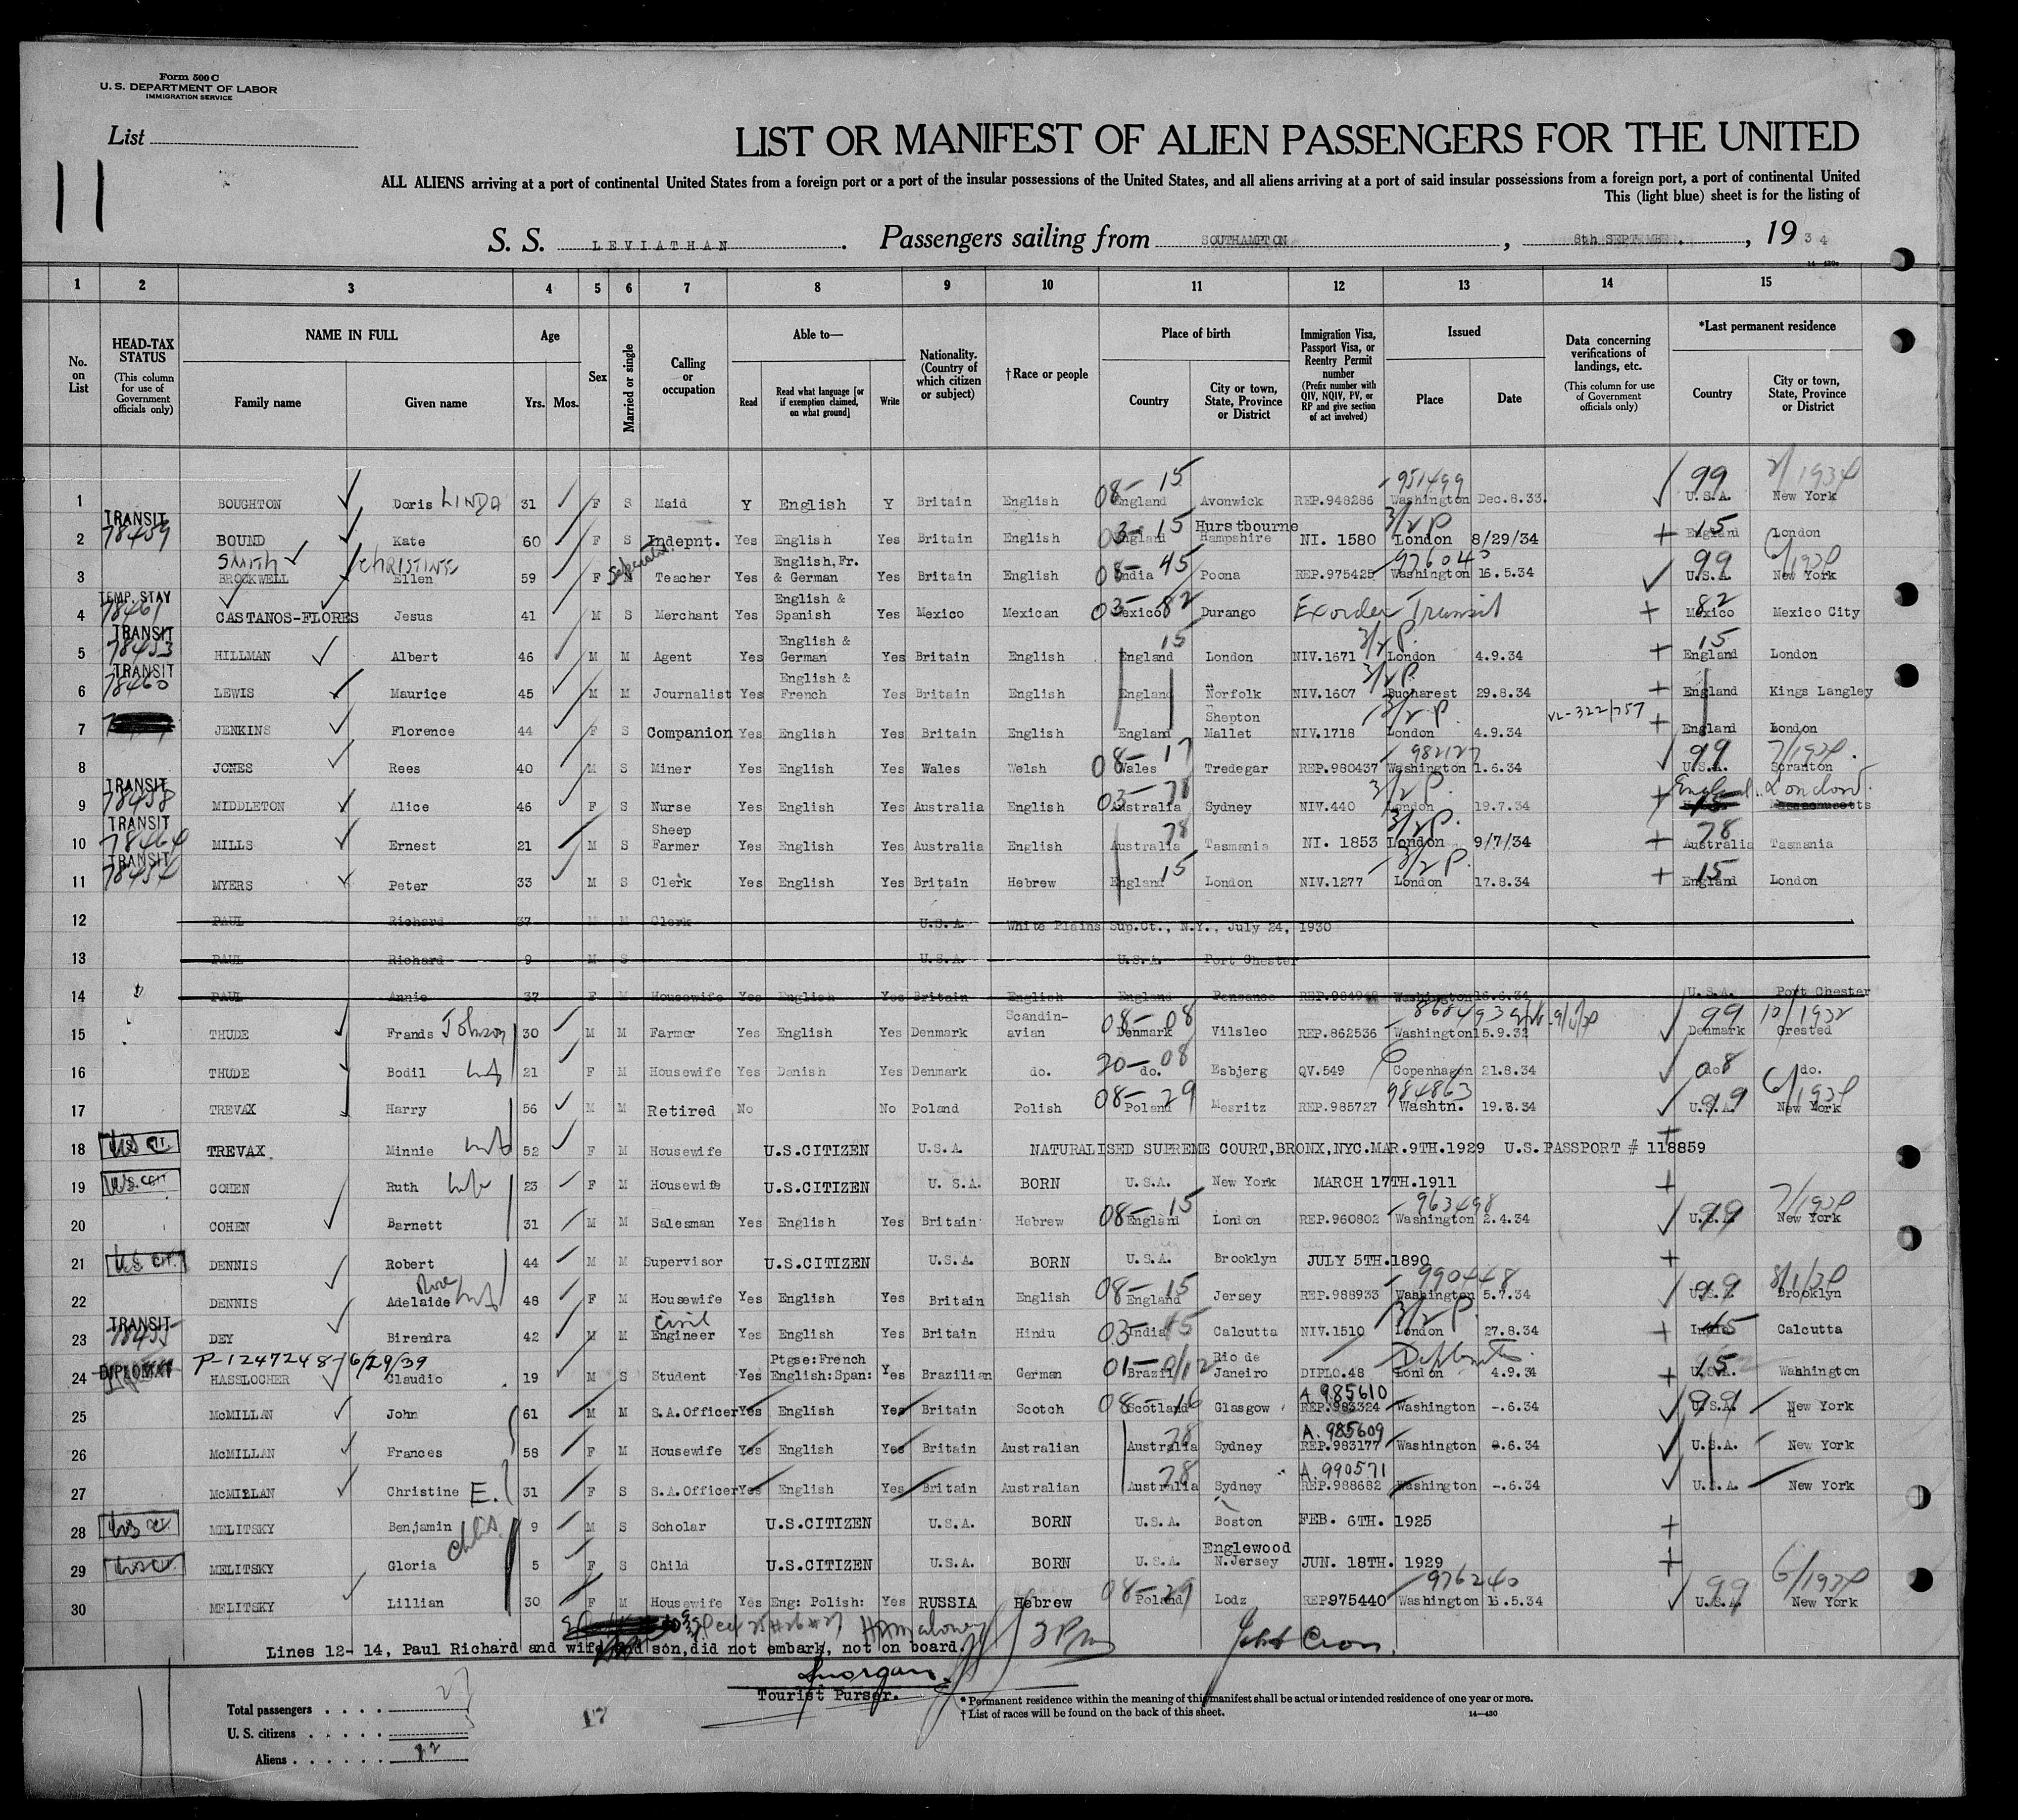 Form 500 C
U. S. DEPARTMENT OF LABOR
IMMIGRATION SERVICE
List
11
LIST OR MANIFEST OF ALIEN PASSENGERS FOR THE UNITED
ALL ALIENS arriving at a port of continental United States from a foreign port or a port of the insular possessions of the United States, and all aliens arriving at a port of said insular possessions from a foreign port, a port of continental United
This (light blue) sheet is for the listing of
S. S. LEVIATHAN. Passengers sailing from SOUTHAMPTON, 8th SEPTEMBER., 1934
14—430a
1 2 3 4 5 6 7 8 9 10 11 12 13 14 15
No. on List
HEAD-TAX STATUS (This column for use of Government officials only)
NAME IN FULL Family name Given name
Age Yrs. Mos.
Sex
Married or single
Calling or occupation
Able to— Read Read what language [or if exemption claimed, on what ground] Write
Nationality. (Country of which citizen or subject)
†Race or people
Place of birth Country City or town, State, Province or District
Immigration Visa, Passport Visa, or Reentry Permit number (Prefix number with QIV, NQIV, PV, or RP and give section of act involved)
Issued Place Date
Data concerning verifications of landings, etc. (This column for use of Government officials only)
*Last permanent residence Country City or town, State, Province or District
1 BOUGHTON Doris LINDA 31 F S Maid Y English Y Britain English 08-15 England Avonwick REP.948286 951499 Washington Dec.8.33. 99 U.S.A. 2/1934 New York
2 TRANSIT 78459 BOUND Kate 60 F S Indepnt. Yes English Yes Britain English 03-15 England Hurstbourne Hampshire NI. 1580 3/2 P London 8/29/34 15 England London
3 SMITH BROCKWELL CHRISTINE Ellen 59 F Separated Teacher Yes English, Fr. & German Yes Britain English 08-45 India Poona REP.975425 976043 Washington 16.5.34 99 U.S.A. 6/1934 New York
4 TEMP. STAY 78461 CASTANOS-FLORES Jesus 41 M S Merchant Yes English & Spanish Yes Mexico Mexican 03-82 Mexico Durango Ex order Transit 82 Mexico Mexico City
5 TRANSIT 78453 HILLMAN Albert 46 M M Agent Yes English & German Yes Britain English 15 England London NIV.1671 3/2 P. London 4.9.34 15 England London
6 TRANSIT 78460 LEWIS Maurice 45 M M Journalist Yes English & French Yes Britain English England Norfolk NIV.1607 3/2 P. Bucharest 29.8.34 England Kings Langley
7 JENKINS Florence 44 F S Companion Yes English Yes Britain English England Shepton Mallet NIV.1718 3/2 P. London 4.9.34 VL-322/757 England London
8 JONES Rees 40 M S Miner Yes English Yes Wales Welsh 08-17 Wales Tredegar REP.980437 982127 Washington 1.6.34 99 U.S.A. 7/1934. Scranton
9 TRANSIT 78458 MIDDLETON Alice 46 F S Nurse Yes English Yes Australia English 03-78 Australia Sydney NIV.440 3/2 P. London 19.7.34 England 15 London. Massachusetts
10 TRANSIT 78464 MILLS Ernest 21 M S Sheep Farmer Yes English Yes Australia English 78 Australia Tasmania NI. 1853 3/2 P. London 9/7/34 78 Australia Tasmania
11 TRANSIT 78454 MYERS Peter 33 M S Clerk Yes English Yes Britain Hebrew 15 England London NIV.1277 3/2 P. London 17.8.34 15 England London
12 PAUL Richard 37 M M Clerk U.S.A. White Plains Sup.Ct., N.Y., July 24, 1930
13 PAUL Richard 9 M S U.S.A. U.S.A. Port Chester
14 PAUL Annie 37 F M Housewife Yes English Yes Britain English England Penzance Washington 16.6.34 U.S.A. Port Chester
15 THUDE Frands Johnson 30 M M Farmer Yes English Yes Denmark Scandinavian 08-08 Denmark Vilsleo REP.862536 Washington 15.9.32 99 Denmark 10/1932 Grested
16 THUDE Bodil wife 21 F M Housewife Yes Danish Yes Denmark do. 20-08 do. Esbjerg QV.549 Copenhagen 21.8.34 08 do. do.
17 TREVAX Harry 56 M M Retired No No Poland Polish 08-29 Poland Mesritz REP.985727 984863 Washtn. 19.6.34 99 U.S.A. 6/1934 New York
18 US CIT. TREVAX Minnie wife 52 F M Housewife U.S.CITIZEN U.S.A. NATURALISED SUPREME COURT,BRONX,NYC.MAR.9TH.1929 U.S.PASSPORT # 118859
19 U.S. CIT COHEN Ruth wife 23 F M Housewife U.S.CITIZEN U. S.A. BORN U.S.A. New York MARCH 17TH.1911
20 COHEN Barnett 31 M M Salesman Yes English Yes Britain Hebrew 08-15 England London REP.960802 963498 Washington 2.4.34 99 U.S.A. 7/1934 New York
21 U.S. CIT. DENNIS Robert 44 M M Supervisor U.S.CITIZEN U.S.A. BORN U.S.A. Brooklyn JULY 5TH.1890
22 DENNIS Adelaide wife 48 F M Housewife Yes English Yes Britain English 08-15 England Jersey REP.988933 990448 Washington 5.7.34 99 U.S.A. 8/1/34 Brooklyn
23 TRANSIT 78455 DEY Birendra 42 M M Civil Engineer Yes English Yes Britain Hindu 03-45 India Calcutta NIV.1510 3/2 P London 27.8.34 45 India Calcutta
24 DIPLOMAT P-1247248-6/29/39 HASSLOCHER Claudio 19 M S Student Yes Ptgse:French English:Span: Yes Brazilian German Brazil Rio de Janeiro DIPLO.48 Diplomatic London 4.9.34 15 U.S.A. Washington
25 McMILLAN John 61 M M S.A.Officer Yes English Yes Britain Scotch 08-16 Scotland Glasgow A.985610 REP.983324 Washington -.6.34 99 U.S.A. New York
26 McMILLAN Frances 58 F M Housewife Yes English Yes Britain Australian 78 Australia Sydney A.985609 REP.983177 Washington -.6.34 U.S.A. New York
27 McMILLAN Christine E. 31 F S S.A.Officer Yes English Yes Britain Australian 78 Australia Sydney A.990571 REP.988682 Washington -.6.34 U.S.A. New York
28 US CIT. MELITSKY Benjamin 9 M S Scholar U.S.CITIZEN U.S.A. BORN U.S.A. Boston FEB. 6TH. 1925
29 MELITSKY Gloria 5 F S Child U.S.CITIZEN U.S.A. BORN U.S.A. Englewood N.Jersey JUN. 18TH. 1929
30 MELITSKY Lillian 30 F M Housewife Yes Eng: Polish: Yes RUSSIA Hebrew 08-29 Poland Lodz REP975440 976240 Washington 15.5.34 99 U.S.A. 6/1934 New York
Lines 12- 14, Paul Richard and wife and son,did not embark, not on board.
Tourist Purser.
Total passengers
U. S. citizens
Aliens
17
* Permanent residence within the meaning of this manifest shall be actual or intended residence of one year or more.
† List of races will be found on the back of this sheet.
14—430